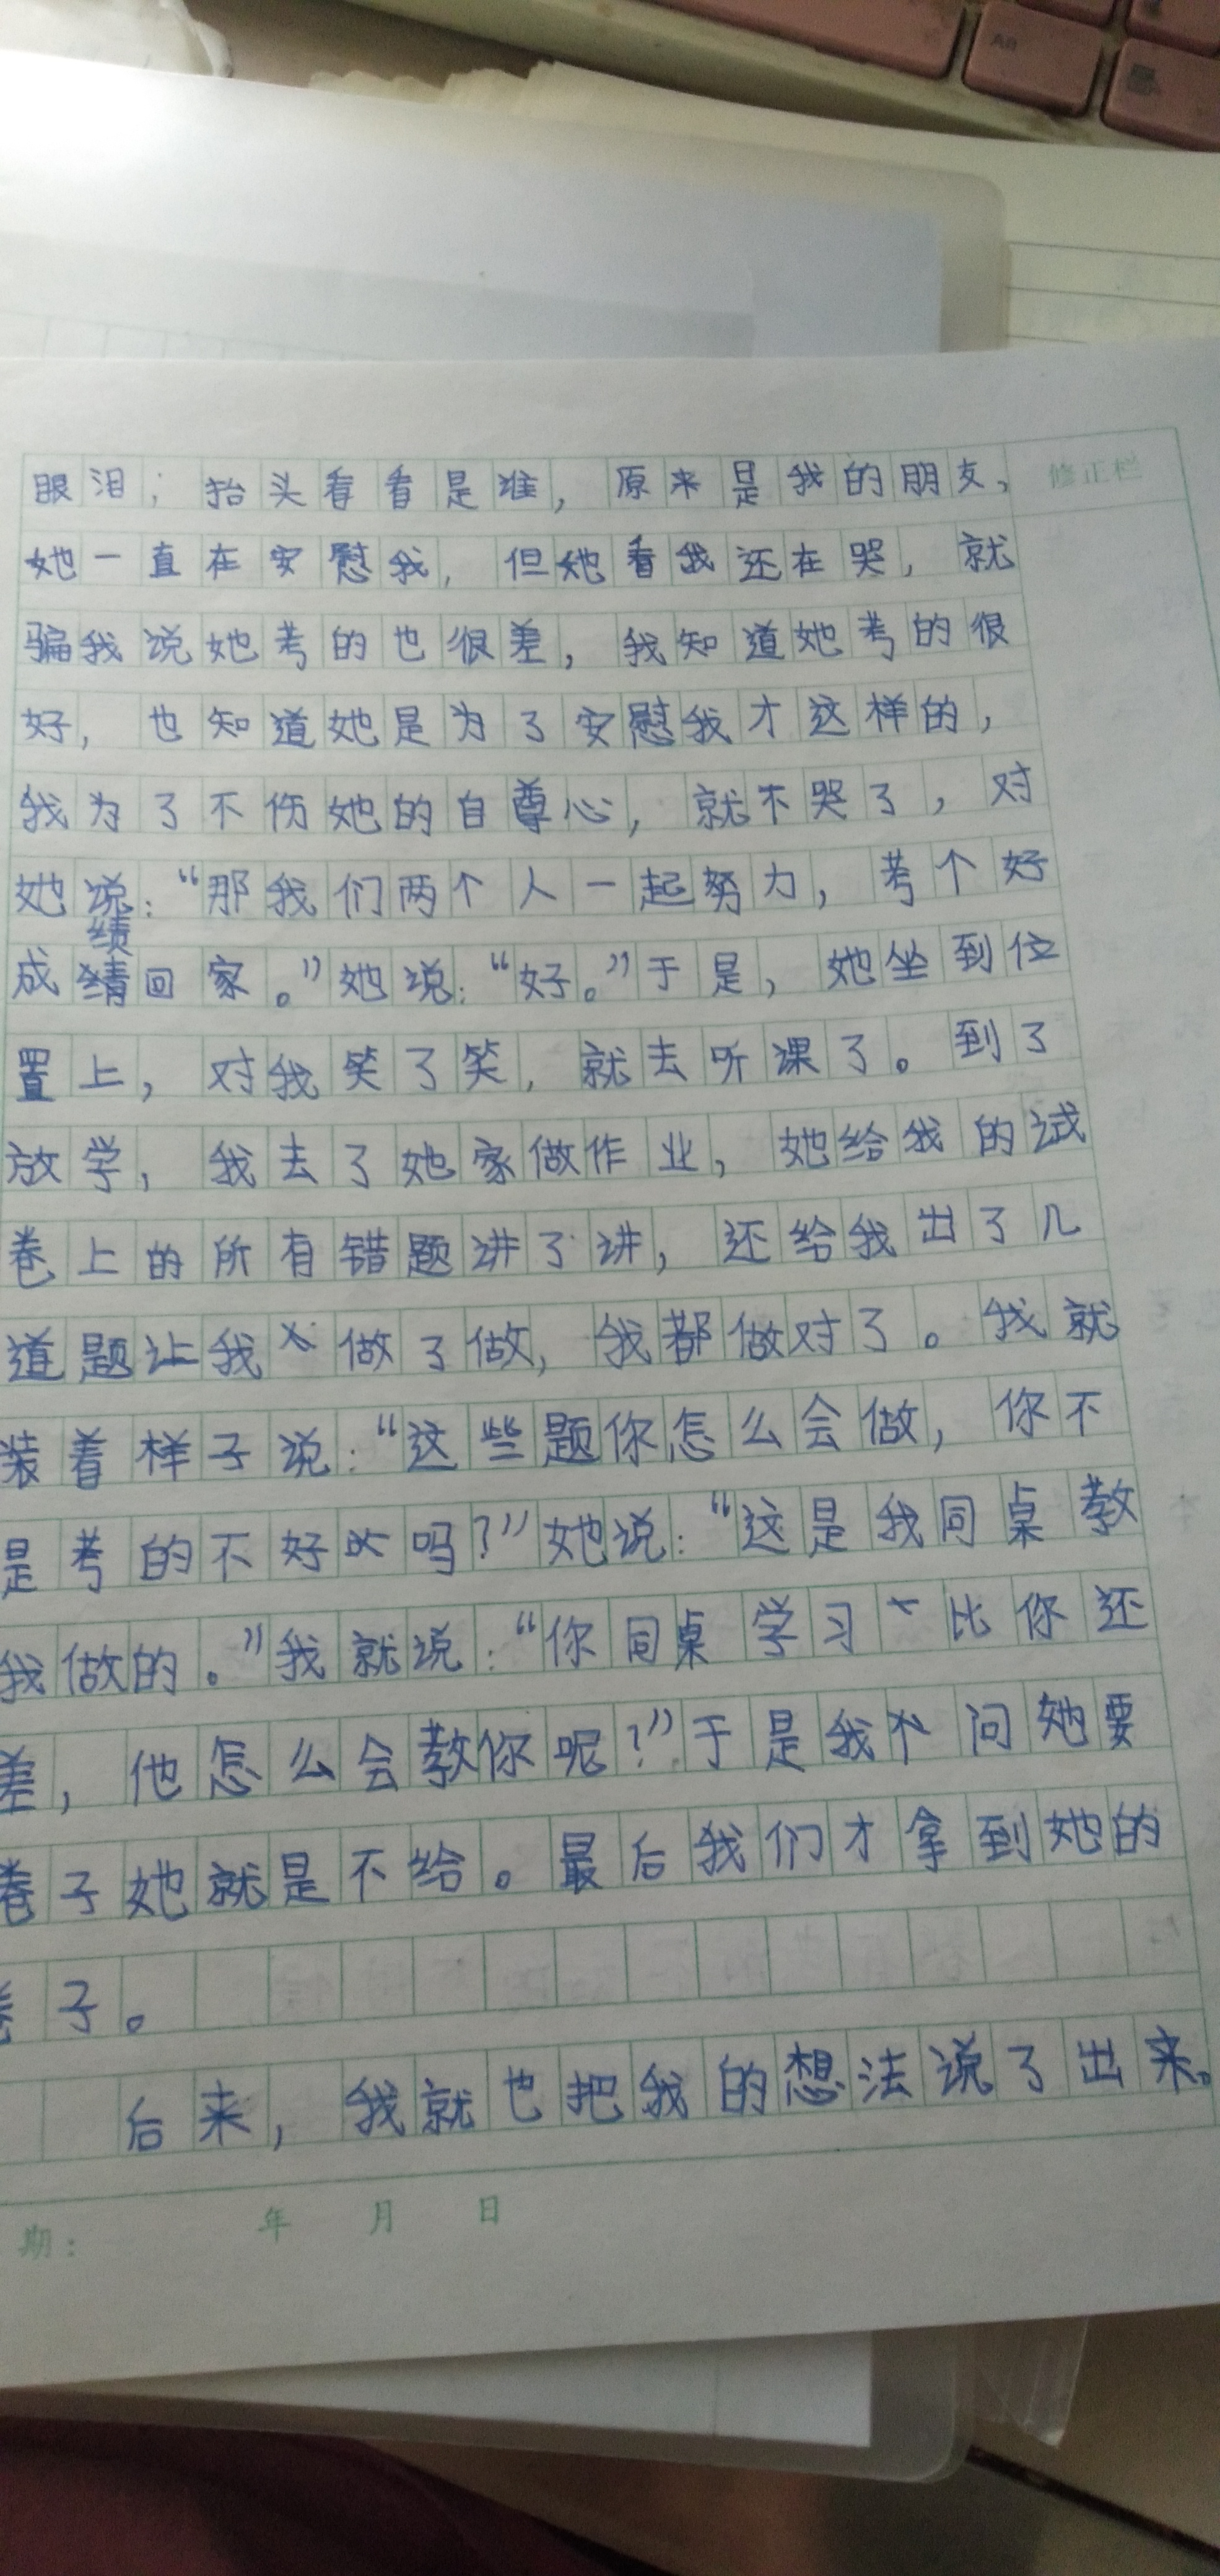 眼泪；抬头看看是谁，原来是我的朋友，
修正栏
她一直在安慰我，但她看我还在哭，就
骗我说她考的也很差，我知道她考的很
好，也知道她是为了安慰我才这样的，
我为了不伤她的自尊心，就不哭了，对
她说：“那我们两个人一起努力，考个好
绩
成回家。”她说：“好。”于是，她坐到位
置上，对我笑了笑，就去听课了。到了
放学，我去了她家做作业，她给我的试
卷上的所有错题讲了讲，还给我出了几
道题让我做了做，我都做对了。我就
装着样子说：“这些题你怎么会做，你不
是考的不好吗？”她说：“这是我同桌教
我做的。”我就说：“你同桌学习比你还
差，他怎么会教你呢？”于是我问她要
卷子她就是不给。最后我们才拿到她的
卷子。
后来，我就也把我的想法说了出来。
期：　年　月　日